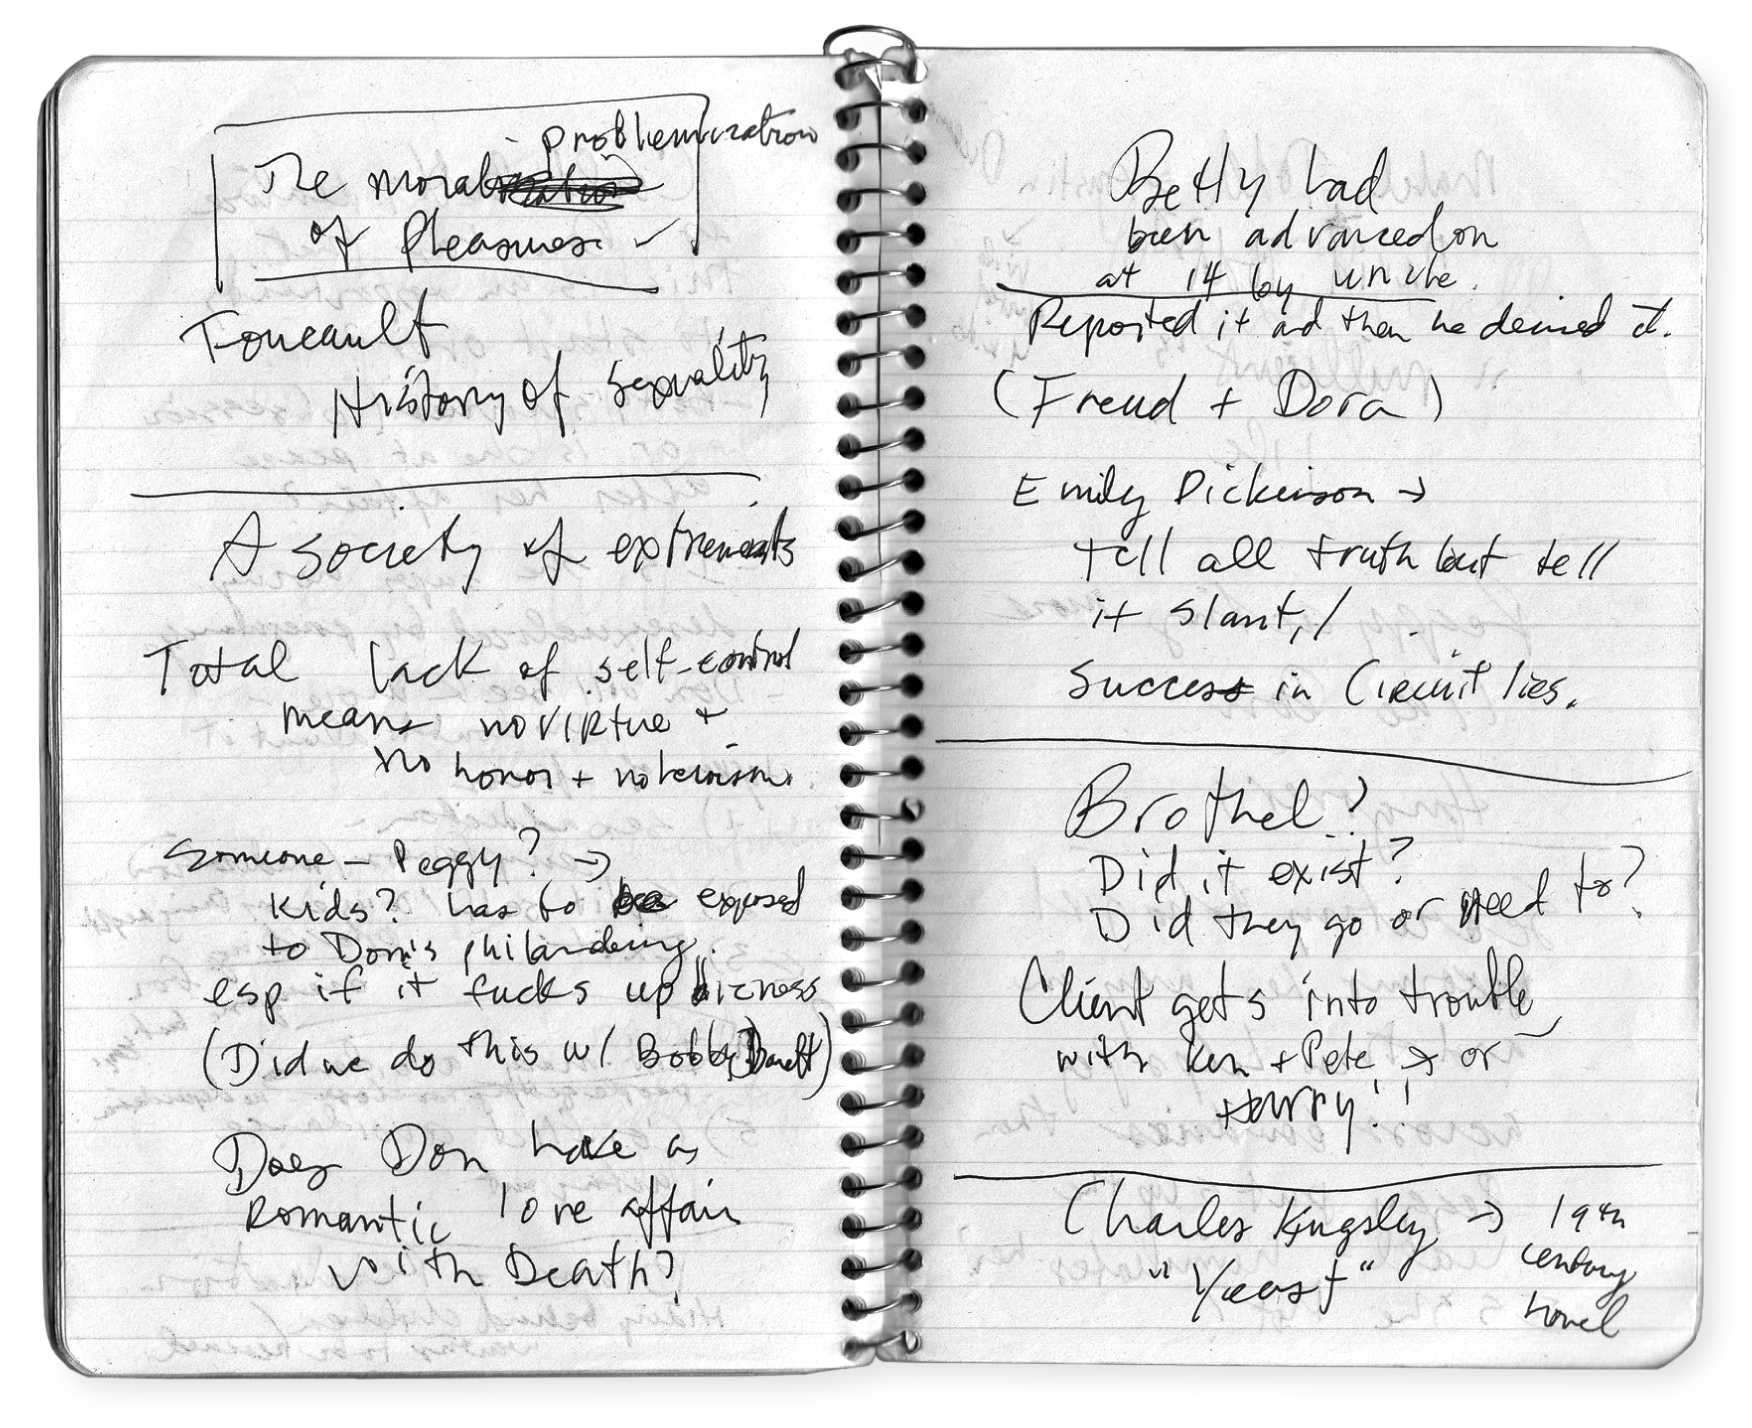 problemization
The moral
of Pleasures
Foucault
History of Sexuality
A society of extremists
Total lack of self-control
means no virtue +
no honor + no heroism.
Someone - Peggy? →
Kids? has to be exposed
to Don's philandering.
esp if it fucks up business
(Did we do this w/ Bobby Barrett)
Does Don have a
Romantic love affair
with Death?
Betty had
been advanced on
at 14 by uncle.
Reported it and then he denied it.
(Freud + Dora)
Emily Dickinson →
tell all truth but tell
it slant, /
Success in Circuit lies.
Brothel?
Did it exist?
Did they go or need to?
Client gets into trouble
with Ken + Pete → or
Harry!!
Charles Kingsley → 19th
century
"Yeast"
novel